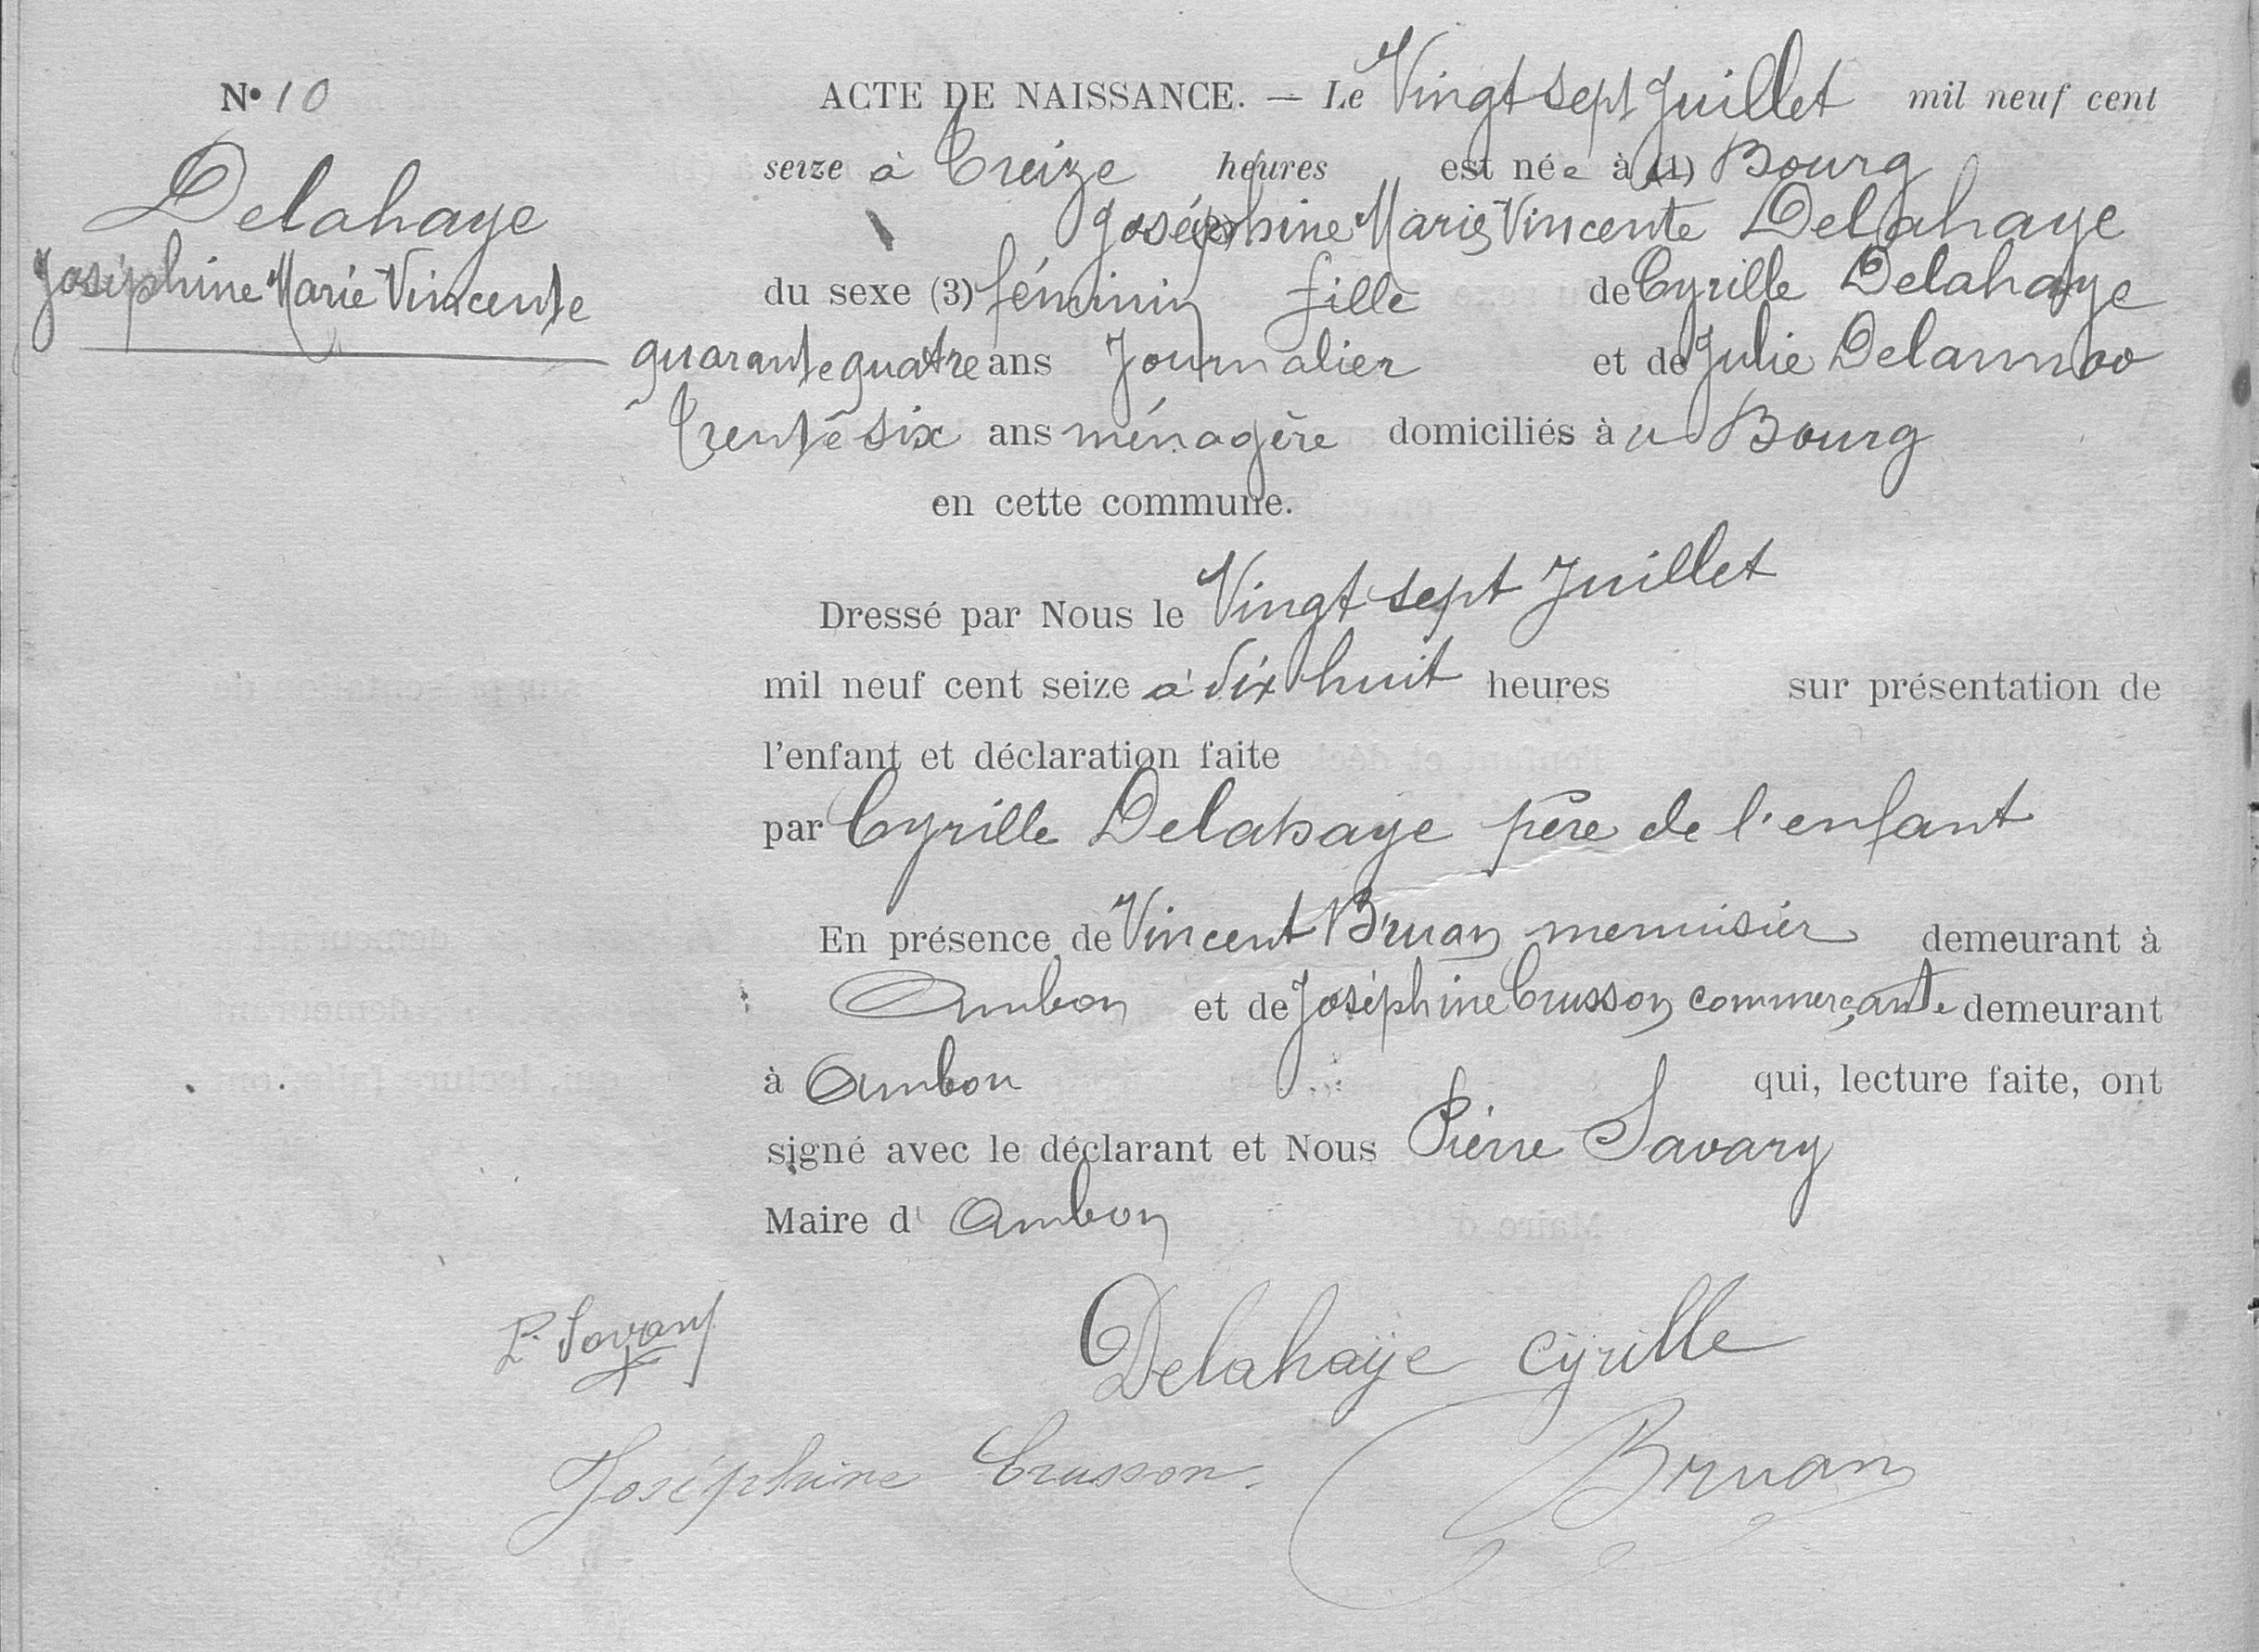 N° 10
Delahaye
Joséphine Marie Vincente
ACTE DE NAISSANCE. — Le Vingt sept Juillet mil neuf cent
seize à Treize heures est née à (1) Bourg
(2) Joséphine Marie Vincente Delahaye
du sexe (3) féminin fille de Cyrille Delahaye
quarante quatre ans Journalier et de Julie Delannoo
trente six ans ménagère domiciliés à u Bourg
en cette commune.
Dressé par Nous le Vingt sept Juillet
mil neuf cent seize à dix huit heures sur présentation de
l'enfant et déclaration faite
par Cyrille Delahaye père de l'enfant
En présence de Vincent Bruan menuisier demeurant à
Ambon et de Joséphine Crusson commerçante demeurant
à Ambon qui, lecture faite, ont
signé avec le déclarant et Nous Pierre Savary
Maire d' Ambon
P. Savary
Delahaÿe Cyrille
Joséphine Crusson.
Bruan